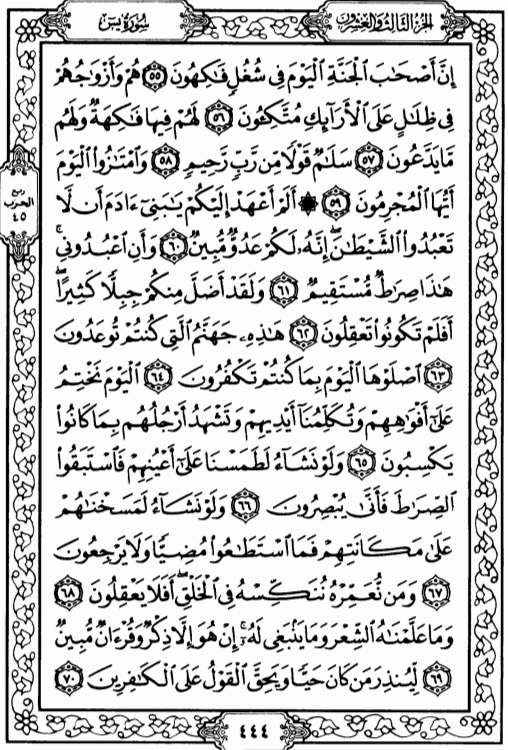 الجزء الثالث والعشرون
سورة يس
إِنَّ أَصْحَٰبَ ٱلْجَنَّةِ ٱلْيَوْمَ فِى شُغُلٍ فَٰكِهُونَ ٥٥ هُمْ وَأَزْوَٰجُهُمْ
فِى ظِلَٰلٍ عَلَى ٱلْأَرَآئِكِ مُتَّكِـُٔونَ ٥٦ لَهُمْ فِيهَا فَٰكِهَةٌ وَلَهُم
مَّا يَدَّعُونَ ٥٧ سَلَٰمٌ قَوْلًا مِّن رَّبٍّ رَّحِيمٍ ٥٨ وَٱمْتَٰزُوا۟ ٱلْيَوْمَ
أَيُّهَا ٱلْمُجْرِمُونَ ٥٩ ۞ أَلَمْ أَعْهَدْ إِلَيْكُمْ يَٰبَنِىٓ ءَادَمَ أَن لَّا
تَعْبُدُوا۟ ٱلشَّيْطَٰنَۖ إِنَّهُۥ لَكُمْ عَدُوٌّ مُّبِينٌ ٦٠ وَأَنِ ٱعْبُدُونِىۚ
هَٰذَا صِرَٰطٌ مُّسْتَقِيمٌ ٦١ وَلَقَدْ أَضَلَّ مِنكُمْ جِبِلًّا كَثِيرًاۖ
أَفَلَمْ تَكُونُوا۟ تَعْقِلُونَ ٦٢ هَٰذِهِۦ جَهَنَّمُ ٱلَّتِى كُنتُمْ تُوعَدُونَ
٦٣ ٱصْلَوْهَا ٱلْيَوْمَ بِمَا كُنتُمْ تَكْفُرُونَ ٦٤ ٱلْيَوْمَ نَخْتِمُ
عَلَىٰٓ أَفْوَٰهِهِمْ وَتُكَلِّمُنَآ أَيْدِيهِمْ وَتَشْهَدُ أَرْجُلُهُم بِمَا كَانُوا۟
يَكْسِبُونَ ٦٥ وَلَوْ نَشَآءُ لَطَمَسْنَا عَلَىٰٓ أَعْيُنِهِمْ فَٱسْتَبَقُوا۟
ٱلصِّرَٰطَ فَأَنَّىٰ يُبْصِرُونَ ٦٦ وَلَوْ نَشَآءُ لَمَسَخْنَٰهُمْ
عَلَىٰ مَكَانَتِهِمْ فَمَا ٱسْتَطَٰعُوا۟ مُضِيًّا وَلَا يَرْجِعُونَ
٦٧ وَمَن نُّعَمِّرْهُ نُنَكِّسْهُ فِى ٱلْخَلْقِۖ أَفَلَا يَعْقِلُونَ ٦٨
وَمَا عَلَّمْنَٰهُ ٱلشِّعْرَ وَمَا يَنۢبَغِى لَهُۥٓۚ إِنْ هُوَ إِلَّا ذِكْرٌ وَقُرْءَانٌ مُّبِينٌ
٦٩ لِّيُنذِرَ مَن كَانَ حَيًّا وَيَحِقَّ ٱلْقَوْلُ عَلَى ٱلْكَٰفِرِينَ ٧٠
ربع
الحزب
٤٥
٤٤٤